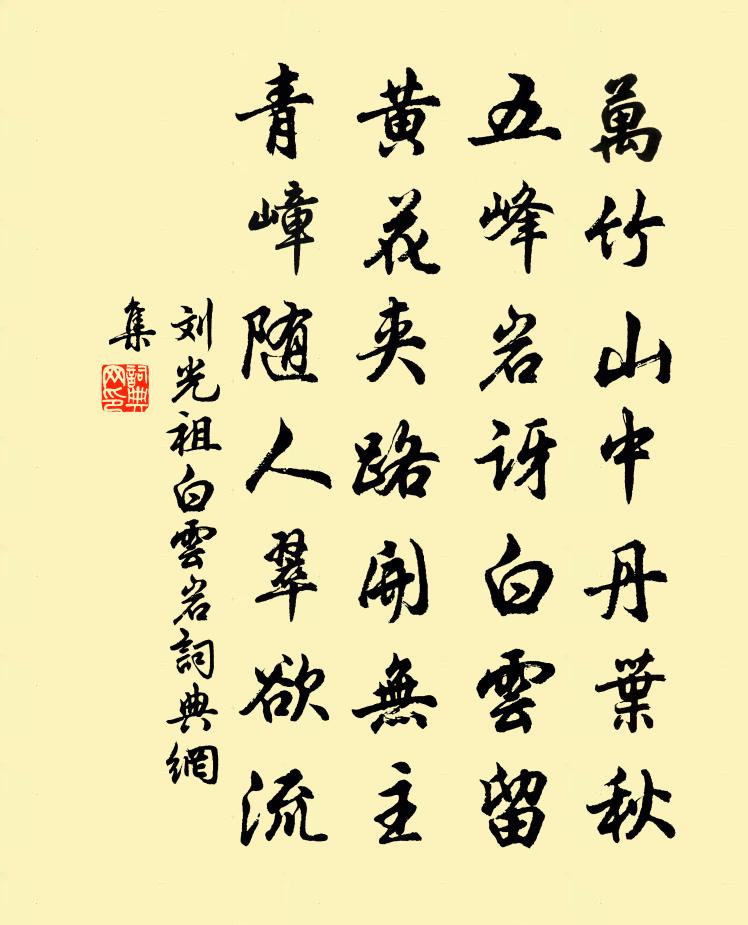 萬竹山中丹葉秋
五峰岩訝白雲留
黄花夾路開無主
青嶂随人翠欲流
刘光祖白雲岩詞典網
集
詞典
网印